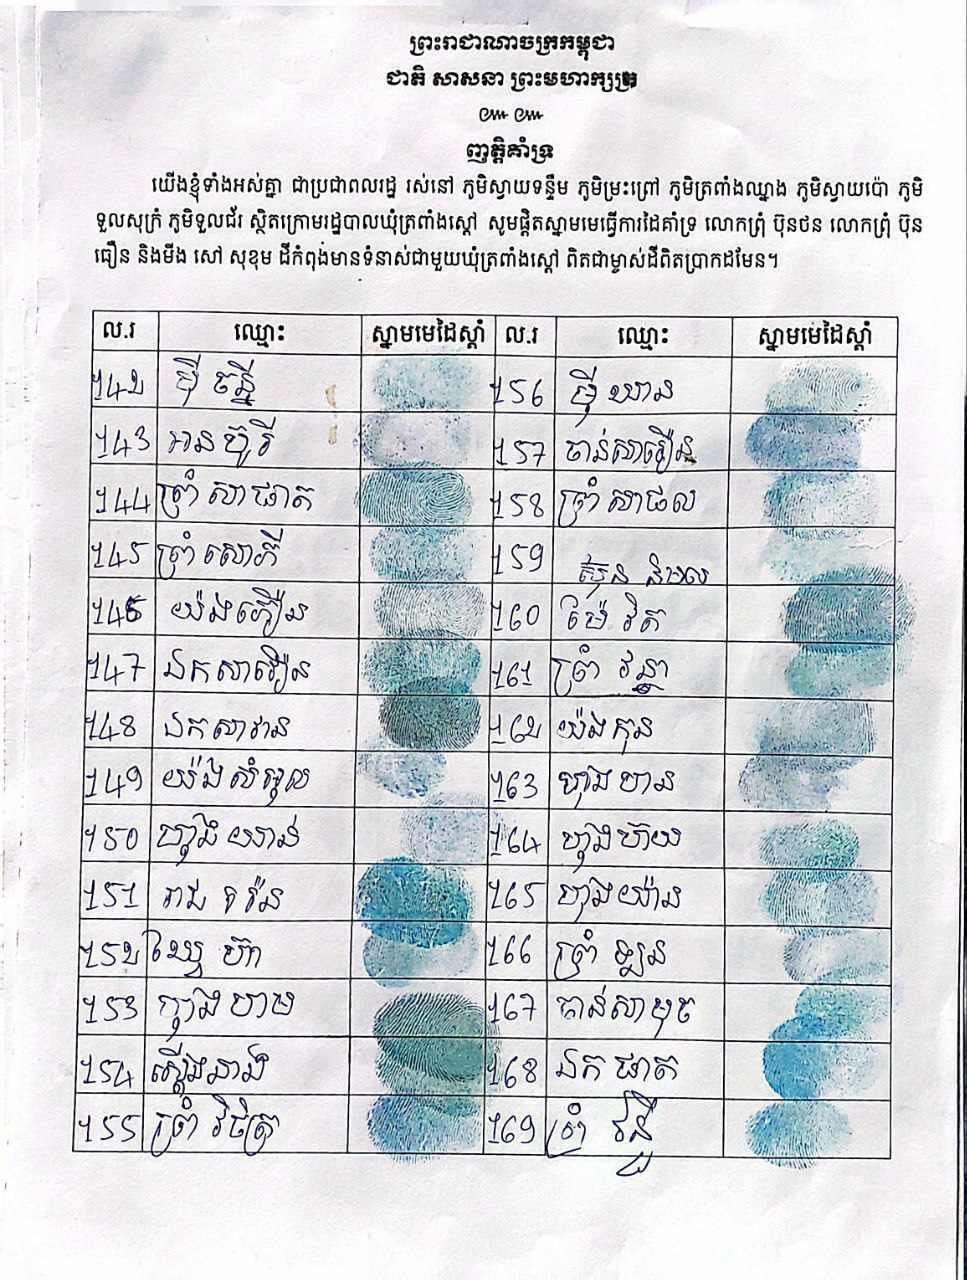 ព្រះរាជាណាចក្រកម្ពុជា
ជាតិ សាសនា ព្រះមហាក្សត្រ
ញត្តិគាំទ្រ
យើងខ្ញុំទាំងអស់គ្នា ជាប្រជាពលរដ្ឋ រស់នៅ ភូមិស្វាយទន្ទឹម ភូមិម្រះព្រៅ ភូមិត្រពាំងឈ្នាង ភូមិស្វាយប៉ោ ភូមិ
ទួលសុក្រំ ភូមិទួលជ័រ ស្ថិតក្រោមរដ្ឋបាលឃុំត្រពាំងស្ដៅ សូមផ្ដិតស្នាមមេធ្វើការដៃគាំទ្រ លោកព្រុំ ប៊ុនថន លោកព្រុំ ប៊ុន
ធឿន និងមីង សៅ សុខុម ដីកំពុងមានទំនាស់ជាមួយឃុំត្រពាំងស្ដៅ ពិតជាម្ចាស់ដីពិតប្រាកដមែន។
ល.រ ឈ្មោះ ស្នាមមេដៃស្ដាំ ល.រ ឈ្មោះ ស្នាមមេដៃស្ដាំ
142 ម៉ី ចន្នី 156 ម៉ី ឃាន
143 អន ហ៊ូរី 157 ចាន់សារឿន
144 ព្រំ សាផាត 158 ព្រំ សាផល
145 ព្រំ សោភី 159 និមល
146 យ៉ង់ភឿន 160 ម៉ៃ វិត
147 ឯកសារឿន 161 ព្រំ វន្នា
148 ឯកសាវាន 162 យ៉ង់កុន
149 យ៉ង់សំអុល 163 ហុងហាន
150 ហុង ឃាន់ 164 ហុងហ៊យ
151 រាជ 165 ហុងយ៉ាន
152 ឈៃ ហ៊ា 166 ព្រំ ឡន
153 ហុងហាម 167 ចាន់សាមុច
154 ស្ដើងនាង 168 ឯក ផាត
155 ព្រំ វិចិត្រ 169 ព្រំ វន្នី